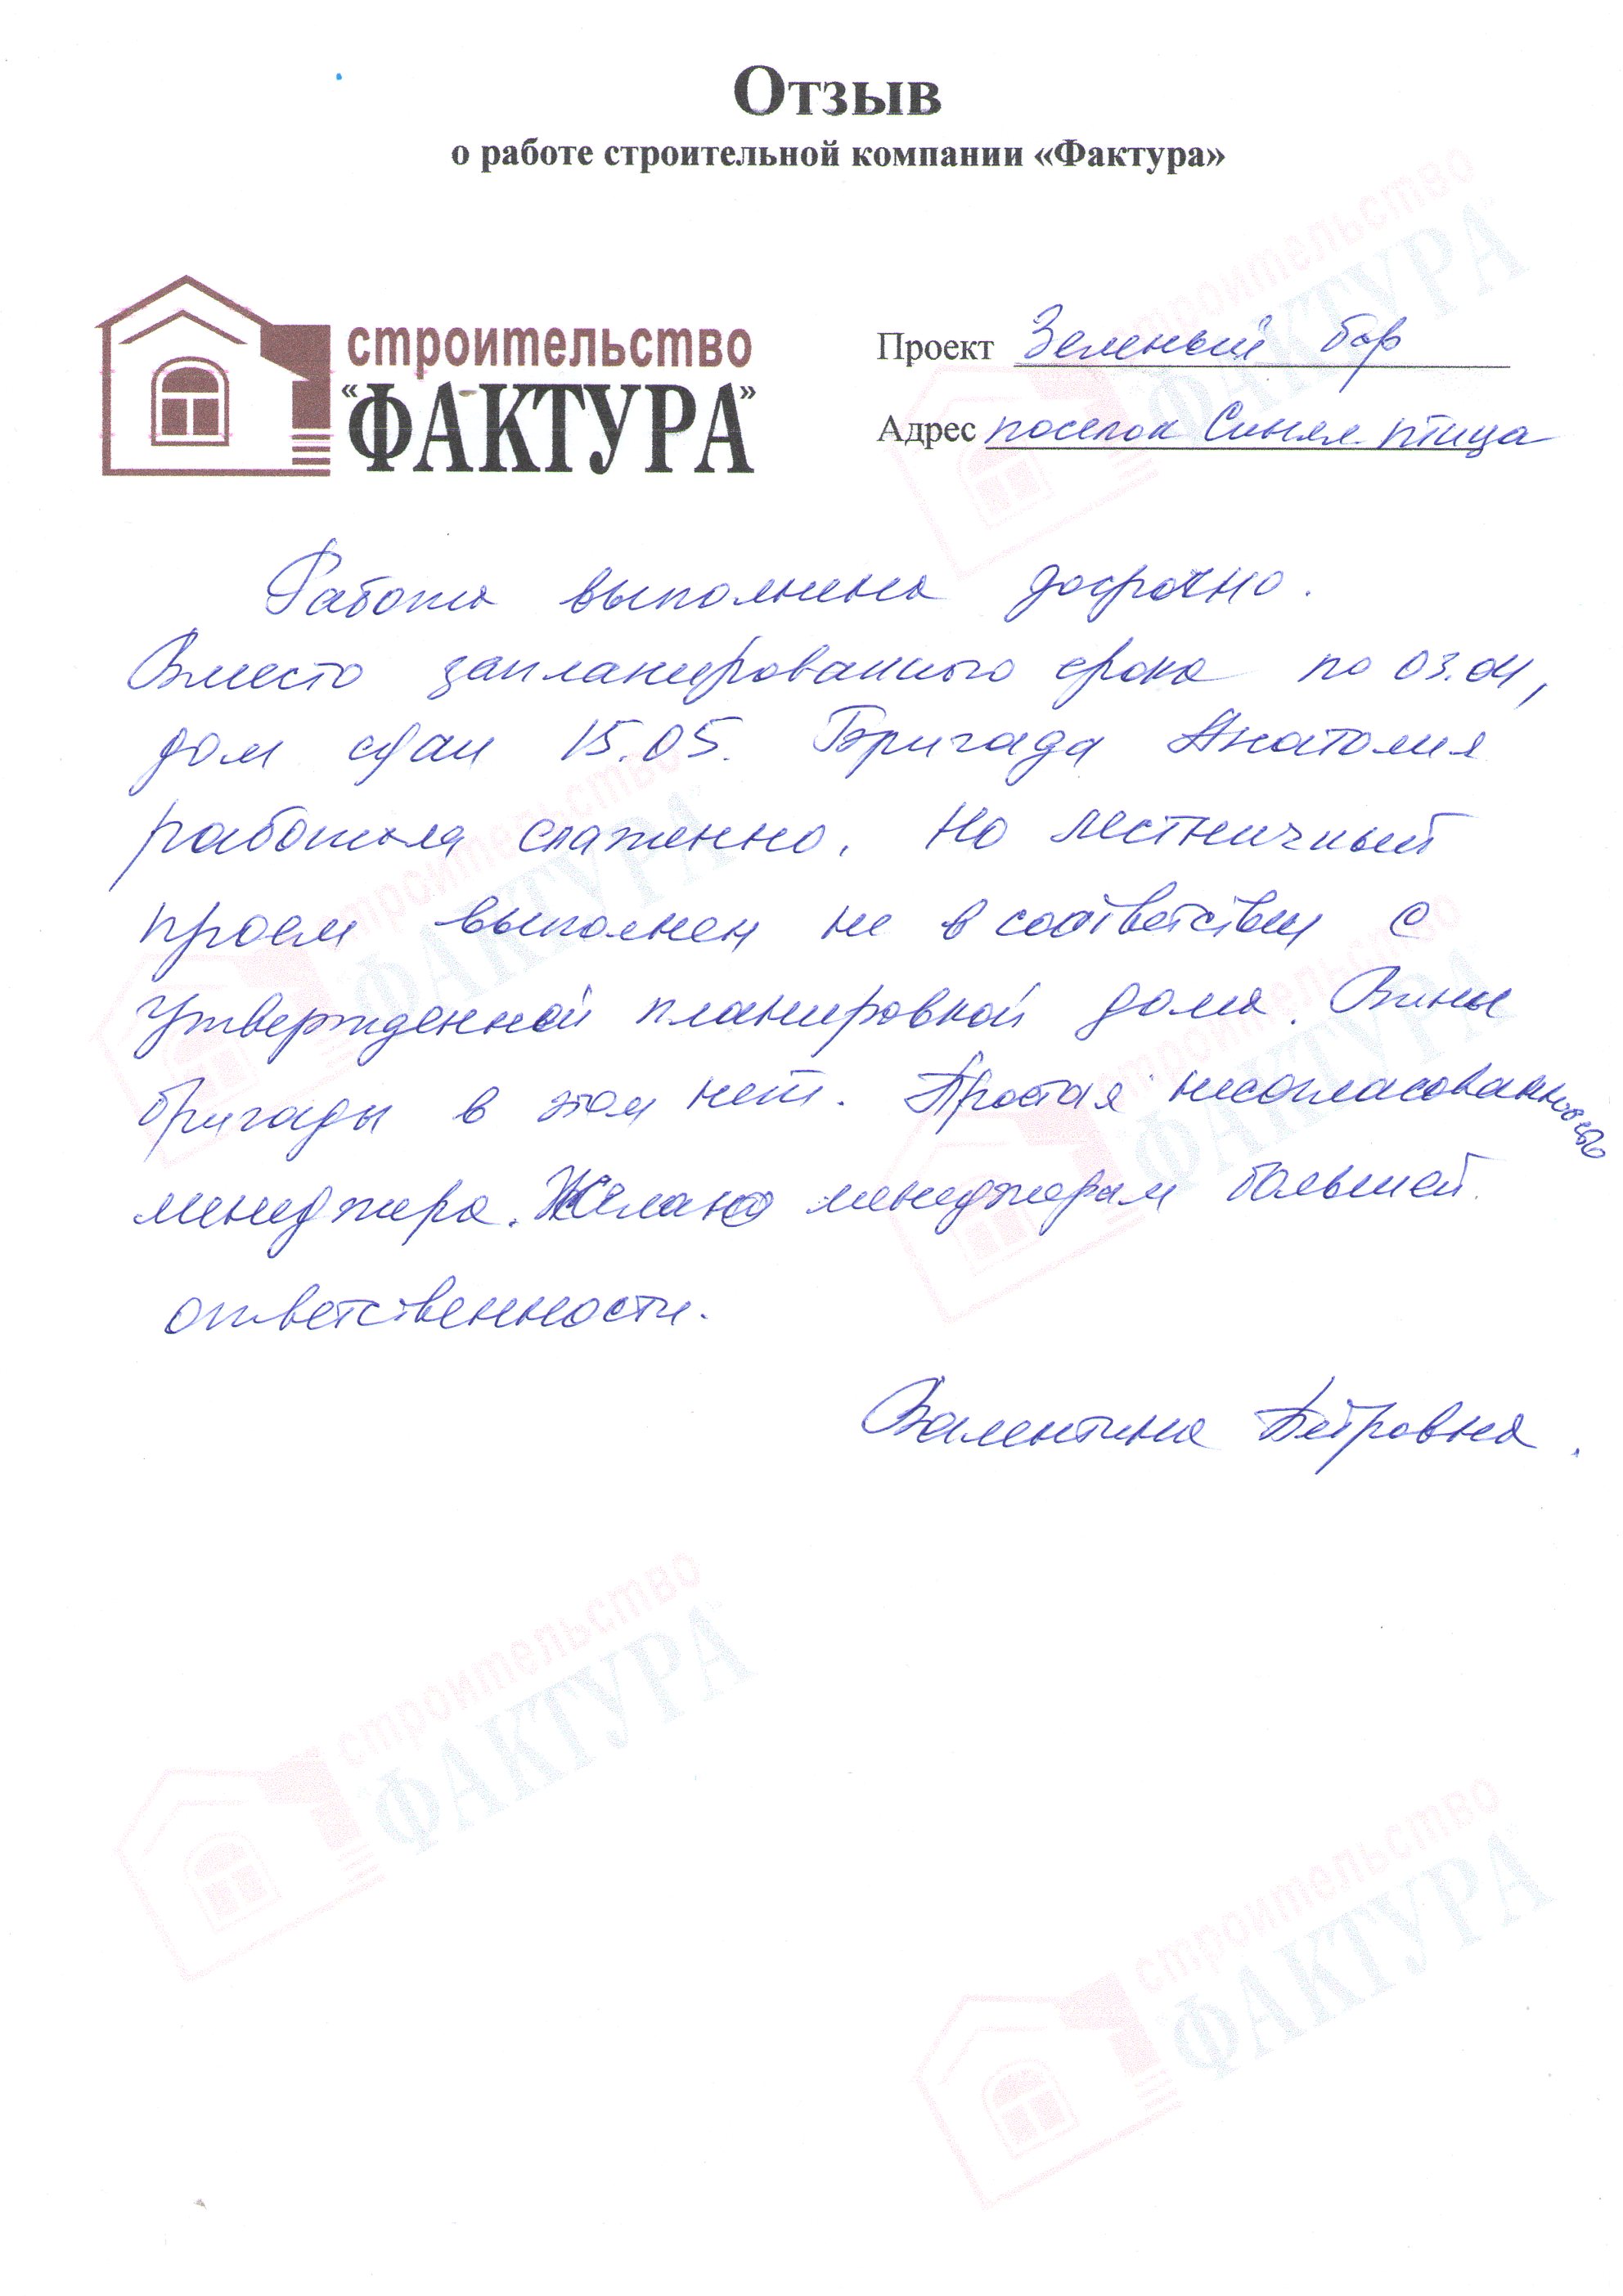 Отзыв
о работе строительной компании «Фактура»
строительство
"ФАКТУРА"
Проект Зеленый бор
Адрес поселок Синяя птица
Работа выполнена досрочно.
Вместо запланированного срока по 03.04,
дом сдан 15.05. Бригада Анатолия
работала слаженно. Но лестничный
проем выполнен не в соответствии с
утвержденной планировкой дома. Вины
бригады в этом нет. Простая несогласованность
менеджера. Желаю менеджерам большей
ответственности.
Валентина Петровна.
строительство
"ФАКТУРА"
строительство
"ФАКТУРА"
строительство
"ФАКТУРА"
строительство
"ФАКТУРА"
строительство
"ФАКТУРА"